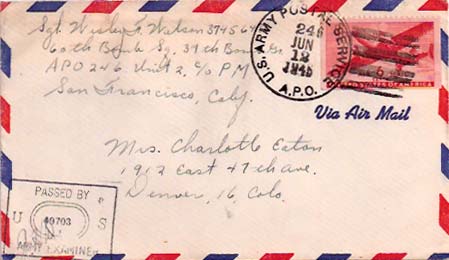 Sgt. Wesley F. Watson 37456
60th Bomb Sq. 39th Bomb Gr.
APO 246 Unit 2, c/o P.M.
San Francisco, Calif.
U.S. ARMY POSTAL SERVICE
246
JUN
12
1945
A.P.O.
6
OF AMERICA
Via Air Mail
Mrs. Charlotte Eaton
1912 East 47th ave.
Denver, 16, Colo.
PASSED BY
U S
40703
ARMY EXAMINER